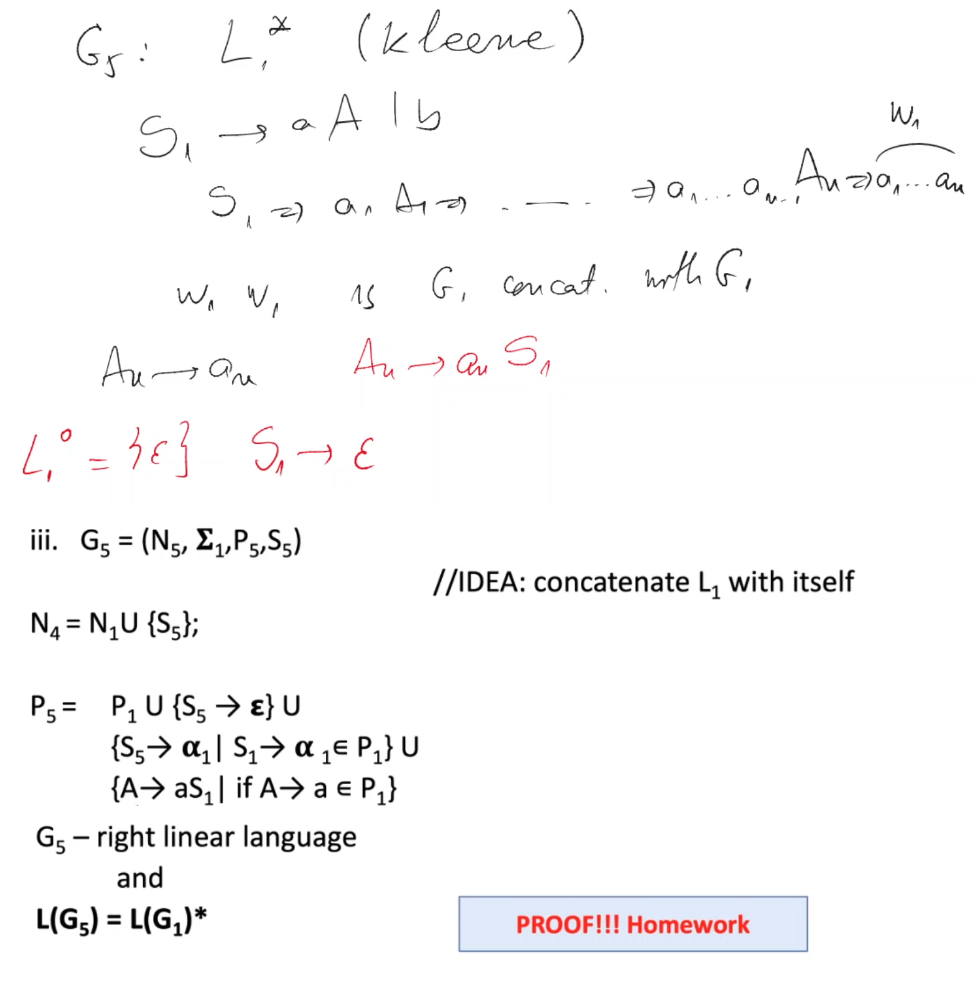 G₅: L₁* (kleene)
S₁ → aA | b
w₁
S₁ ⇒ a₁ A₁ ⇒ . — . ⇒ a₁...aₙ₋₁ Aₙ ⇒ a₁...aₙ
w₁ v₁ is G₁ concat. with G₁
Aₙ → aₙ Aₙ → aₙ S₁
L₁⁰ = {ε} S₁ → ε
iii. G₅ = (N₅, Σ₁,P₅,S₅)
//IDEA: concatenate L₁ with itself
N₄ = N₁U {S₅};
P₅ = P₁ U {S₅ → ε} U
{S₅→ α₁| S₁→ α ₁∈ P₁} U
{A→ aS₁| if A→ a ∈ P₁}
G₅ – right linear language
and
L(G₅) = L(G₁)*
PROOF!!! Homework